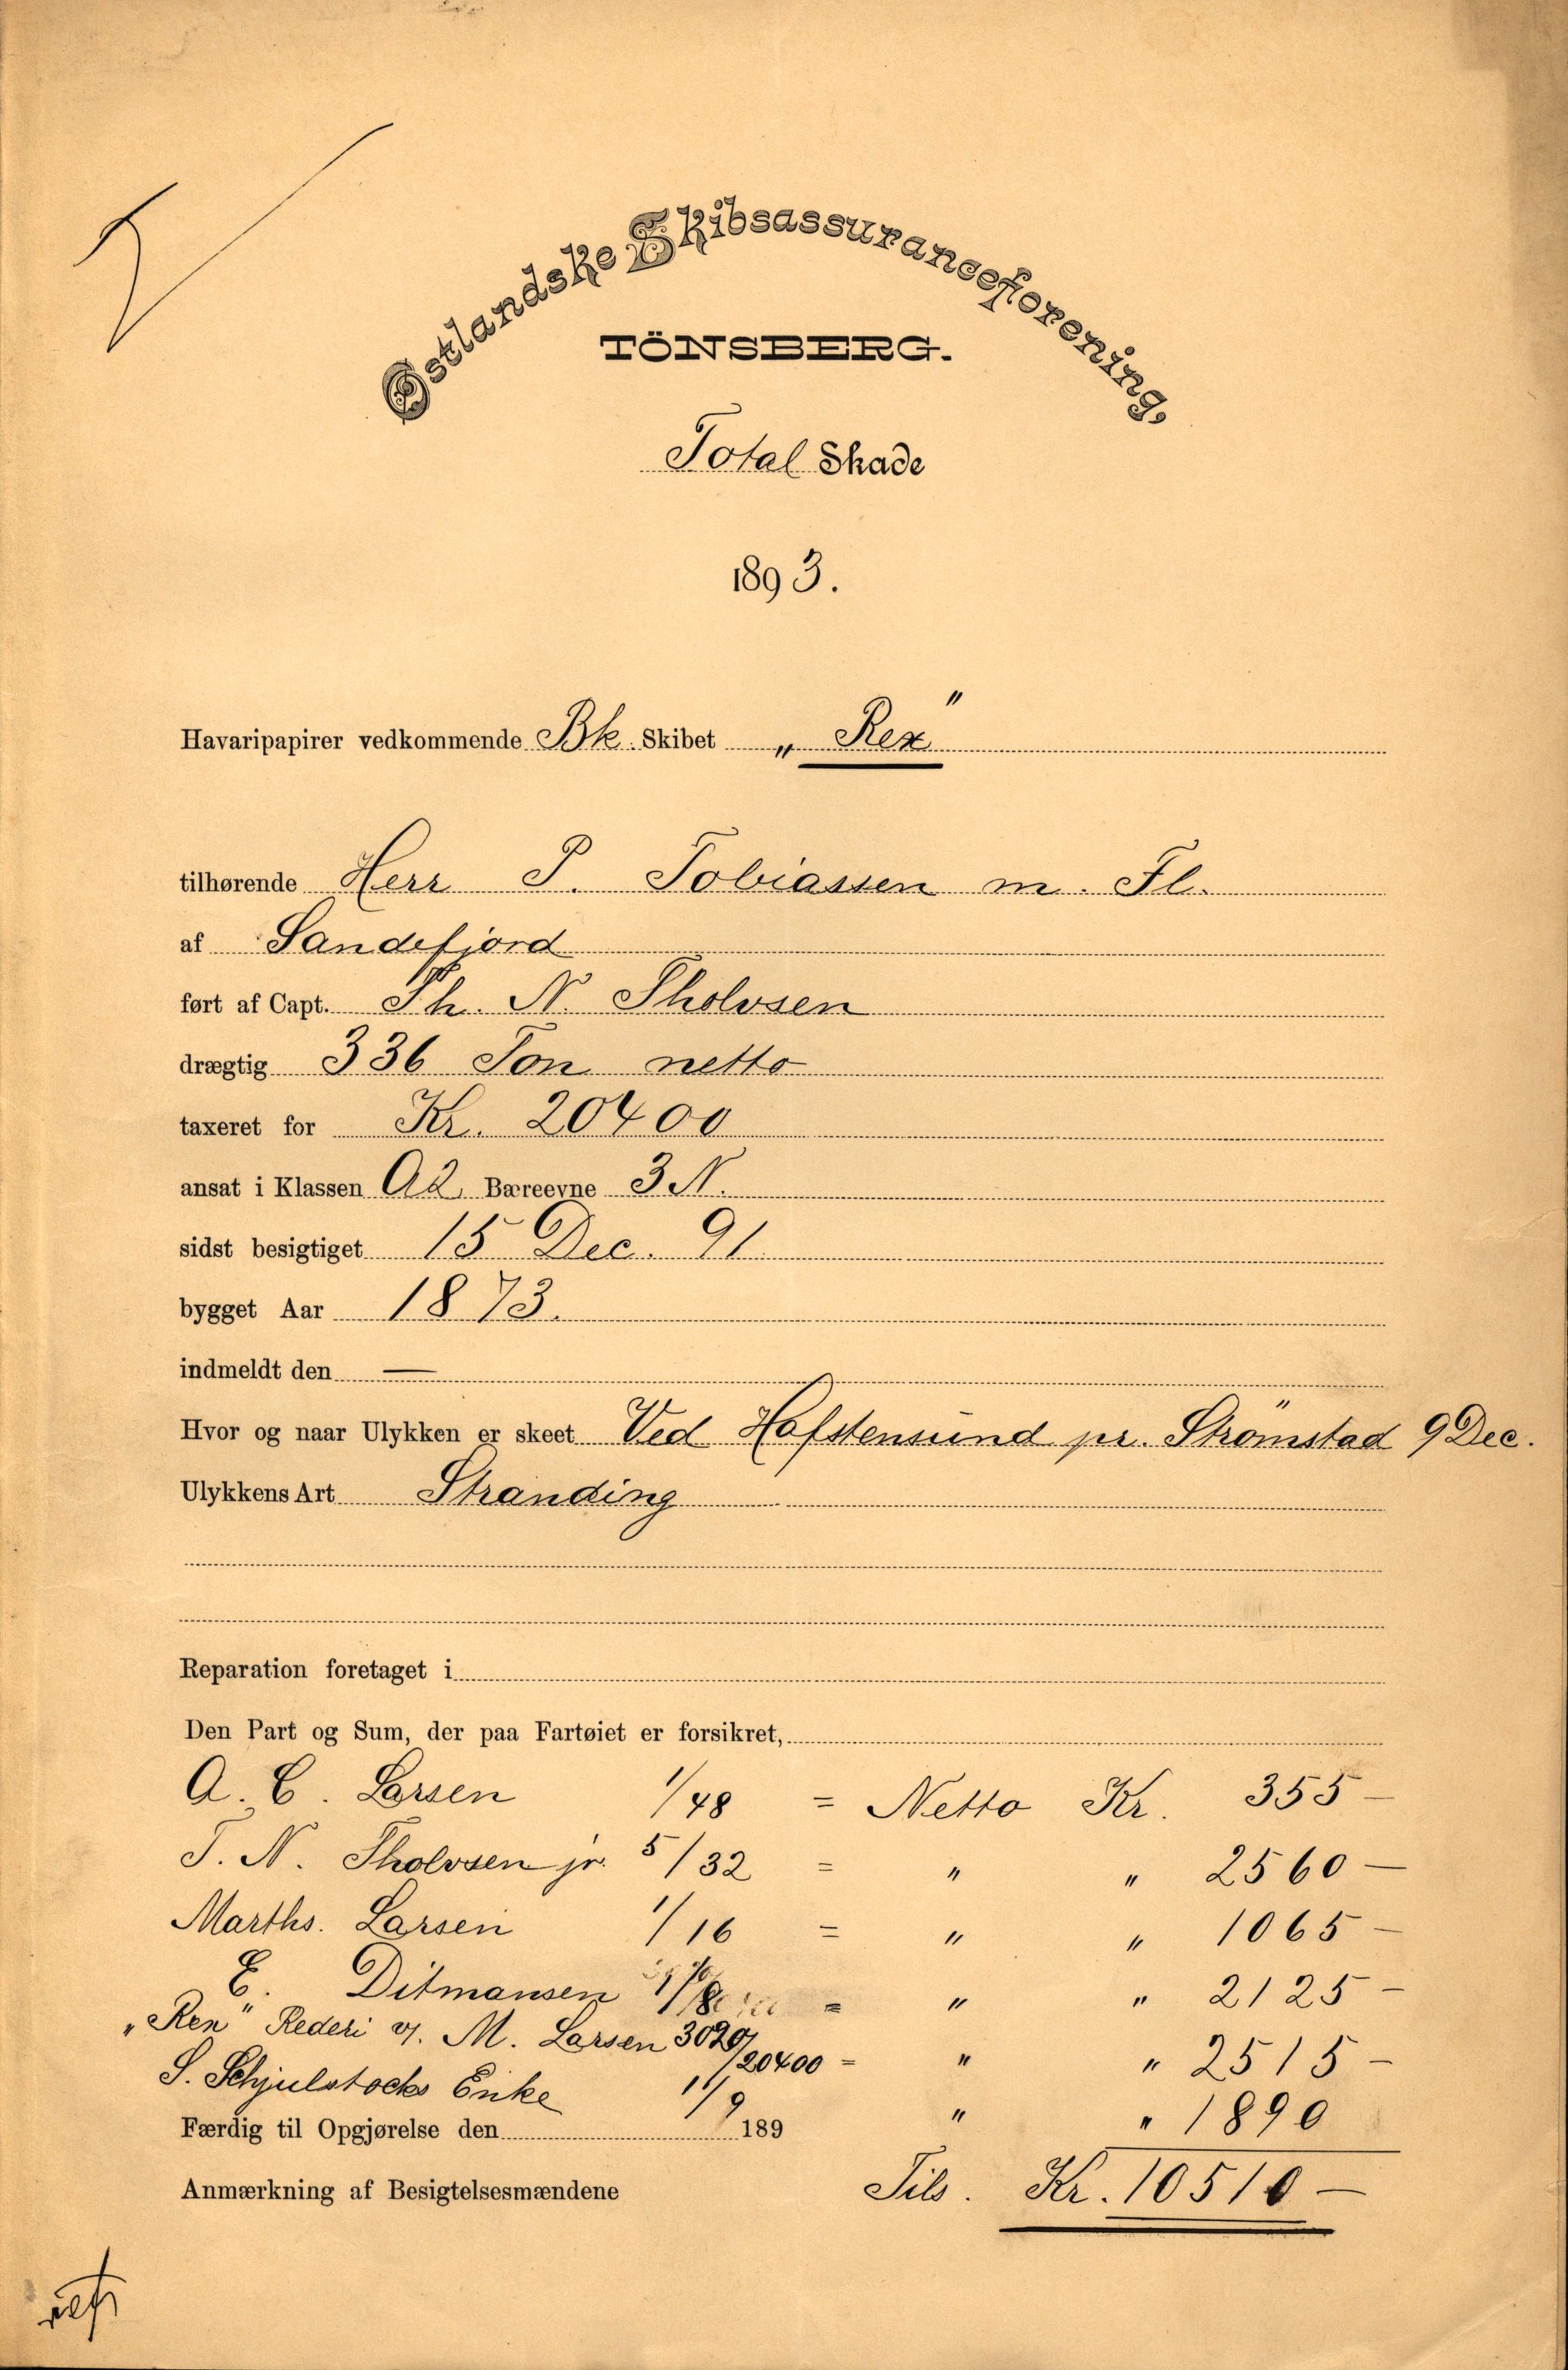 Østlandske Skibsassuranceforening,
TÖNSBERG.
Total Skade
1893.
Havaripapirer vedkommende Bk. Skibet „Rex"
tilhørende Herr T. Tobiassen m. Fl.
af Sandefjord
ført af Capt. Th. N. Tholvsen
drægtig 336 Ton netto
taxeret for Kr. 20400
ansat i Klassen A2 Bæreevne 3 N.
sidst besigtiget 15 Dec. 91
bygget Aar 1873.
indmeldt den —
Hvor og naar Ulykken er skeet Ved Hafstensund pr. Strömstad 9 Dec.
Ulykkens Art Stranding
Reparation foretaget i
Den Part og Sum, der paa Fartøiet er forsikret,
A. C. Larsen 1/48 = Netto Kr. 355 —
T. N. Tholvsen jr. 5/32 = " " 2560 —
Marths. Larsen 1/16 = " " 1065 —
E. Ditmansen 1/8 = " " 2125 —
„Rex" Rederi v. M. Larsen 3020/20400 = " " 2515 —
S. Schjulstocks Enke 1/9 " " 1890
Færdig til Opgjørelse den 189
Anmærkning af Besigtelsesmændene Tils. Kr. 10510 —